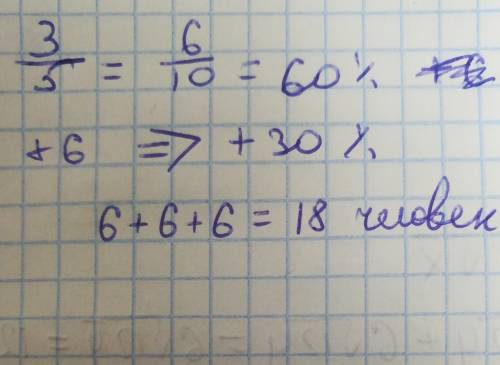 3/5 = 6/10 = 60%
+6 ⇒ +30%
6+6+6 = 18 человек